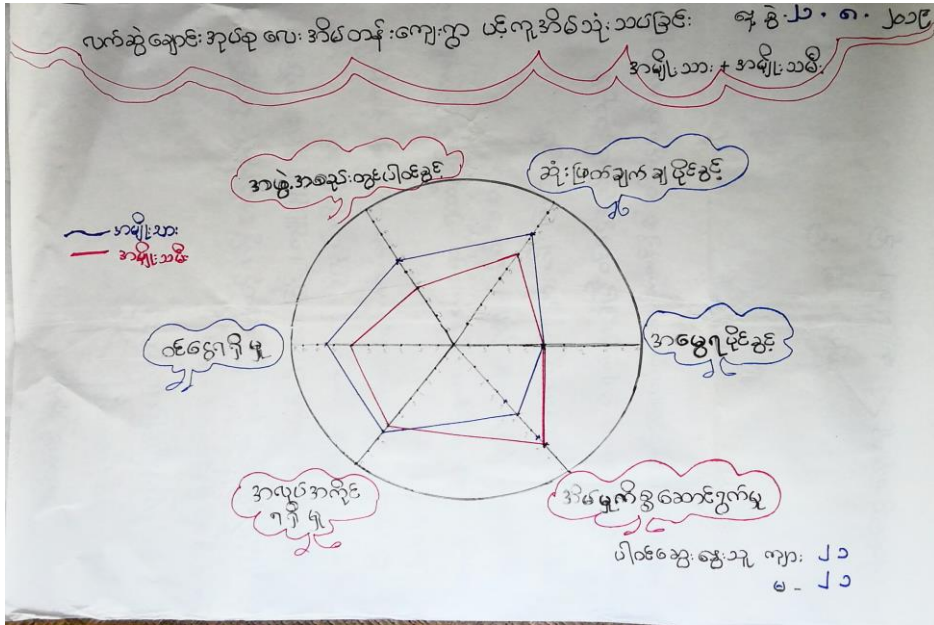 လက်ဆွဲချောင်းအုပ်စု လေးအိမ်တန်းကျေးရွာ ပင့်ကူအိမ်သုံးသပ်ခြင်း
ရက်စွဲ ၂၁ . ၈ . ၂၀၁၉
အမျိုးသား + အမျိုးသမီး
အဖွဲ့အစည်းတွင်ပါဝင်ခွင့်
ဆုံးဖြတ်ချက်ချပိုင်ခွင့်
အမျိုးသား
အမျိုးသမီး
ဝင်ငွေရရှိမှု
အမွေရပိုင်ခွင့်
အလုပ်အကိုင်
ရရှိမှု
အိမ်မှုကိစ္စဆောင်ရွက်မှု
ပါဝင်ဆွေးနွေးသူ ကျား ၂၁
မ - ၂၁